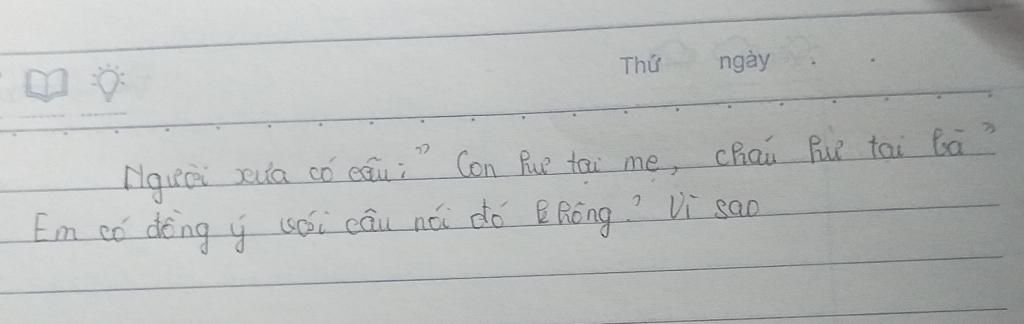 Thứ ngày . .
Người xưa có câu: " Con hư tại mẹ, cháu hư tại bà"
Em có đồng ý với câu nói đó không? Vì sao